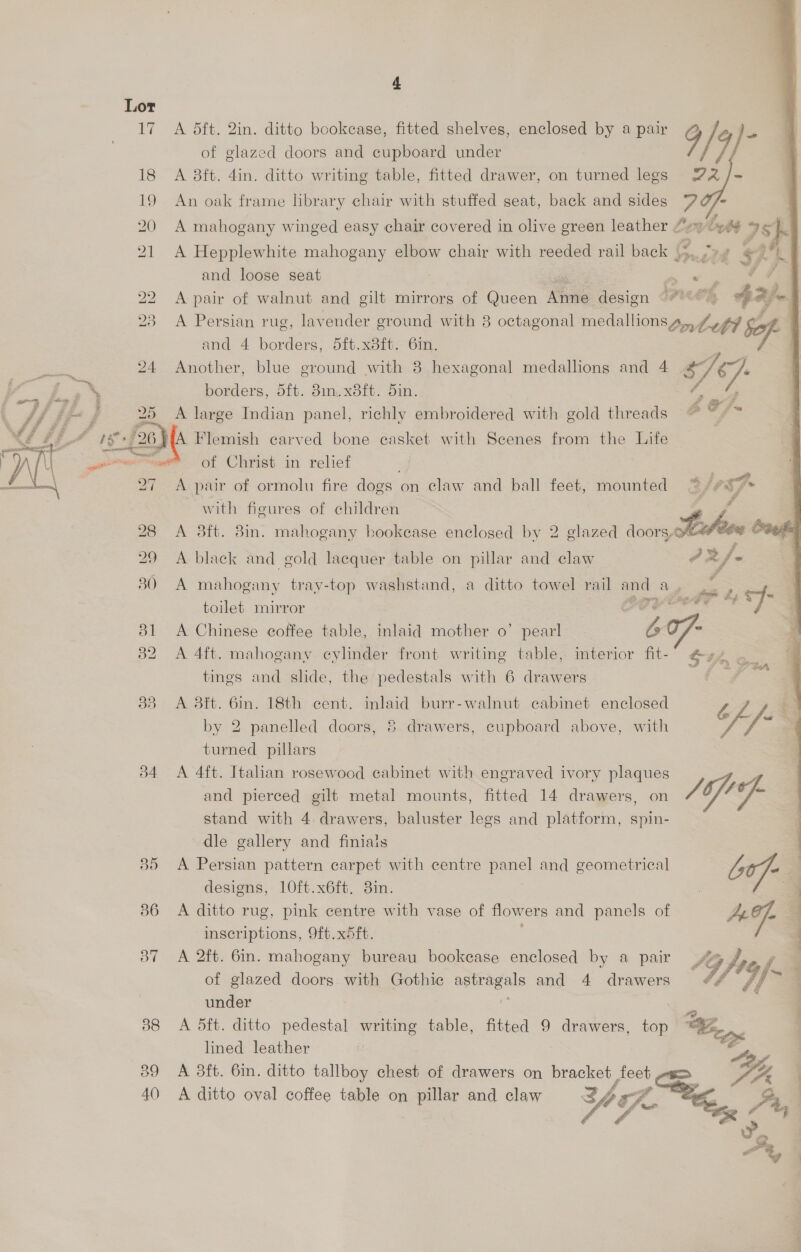 4
Lot
17 A 5ft. 2in. ditto bookcase, fitted shelves, enclosed by a pair
of glazed doors and cupboard under 9/9/-
18 A 3ft. 4in. ditto writing table, fitted drawer, on turned legs 22/-
19 An oak frame library chair with stuffed seat, back and sides
20 A mahogany winged easy chair covered in olive green leather
21 A Hepplewhite mahogany elbow chair with reeded rail back
and loose seat
22 A pair of walnut and gilt mirrors of Queen Anne design
23 A Persian rug, lavender ground with 3 octagonal medallions
and 4 borders, 5ft.x3ft. 6in.
24 Another, blue ground with 3 hexagonal medallions and 4
borders, 5ft. 3in.x3ft. 5in.
25 A large Indian panel, richly embroidered with gold threads
26 A Flemish carved bone casket with Scenes from the Life
of Christ in relief
27 A pair of ormolu fire dogs on claw and ball feet, mounted
with figures of children
28 A 3ft. 3in. mahogany bookcase enclosed by 2 glazed doors
29 A black and gold lacquer table on pillar and claw
30 A mahogany tray-top washstand, a ditto towel rail and a
toilet mirror
31 A Chinese coffee table, inlaid mother o' pearl 60/-
32 A 4ft. mahogany cylinder front writing table, interior fit-
tings and slide, the pedestals with 6 drawers
33 A 3ft. 6in. 18th cent. inlaid burr-walnut cabinet enclosed
by 2 panelled doors, 8 drawers, cupboard above, with
turned pillars
34 A 4ft. Italian rosewood cabinet with engraved ivory plaques
and pierced gilt metal mounts, fitted 14 drawers, on
stand with 4 drawers, baluster legs and platform, spin-
dle gallery and finials
35 A Persian pattern carpet with centre panel and geometrical
designs, 10ft.x6ft. 3in. 60/-
36 A ditto rug, pink centre with vase of flowers and panels of
inscriptions, 9ft.x5ft.
37 A 2ft. 6in. mahogany bureau bookcase enclosed by a pair
of glazed doors with Gothic astragals and 4 drawers
under
38 A 5ft. ditto pedestal writing table, fitted 9 drawers, top
lined leather
39 A 3ft. 6in. ditto tallboy chest of drawers on bracket feet
40 A ditto oval coffee table on pillar and claw